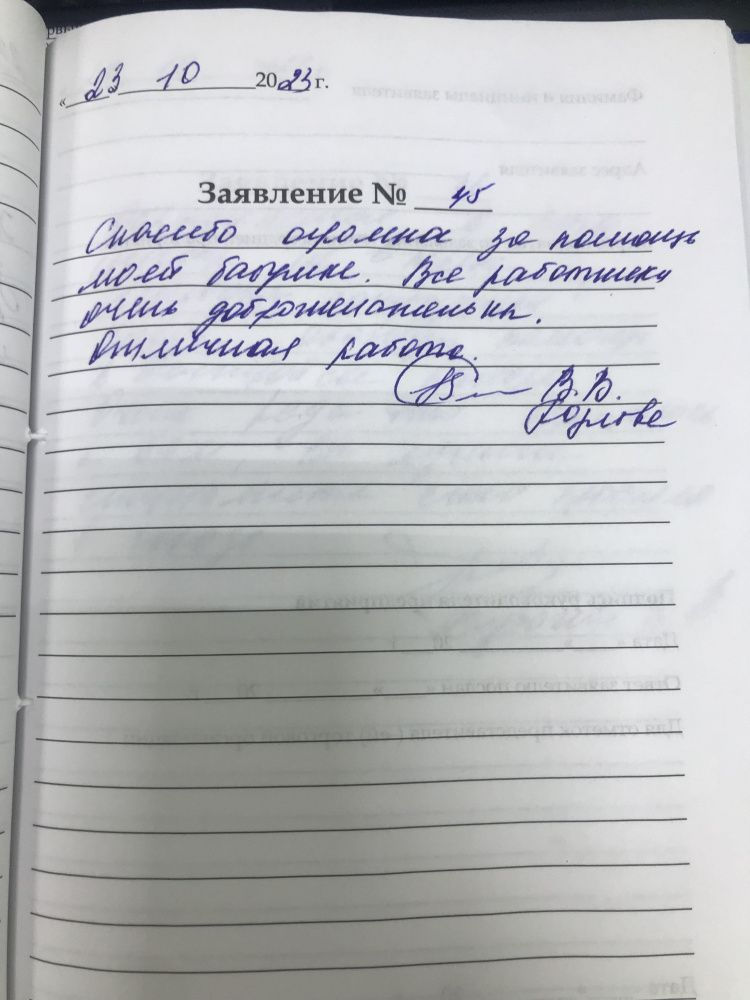 « 23 10 2023 г.
Заявление № 45
Спасибо огромна за помощь
моей бабушке. Все работники
очень доброжелательны.
Отличная работа.
В. В.